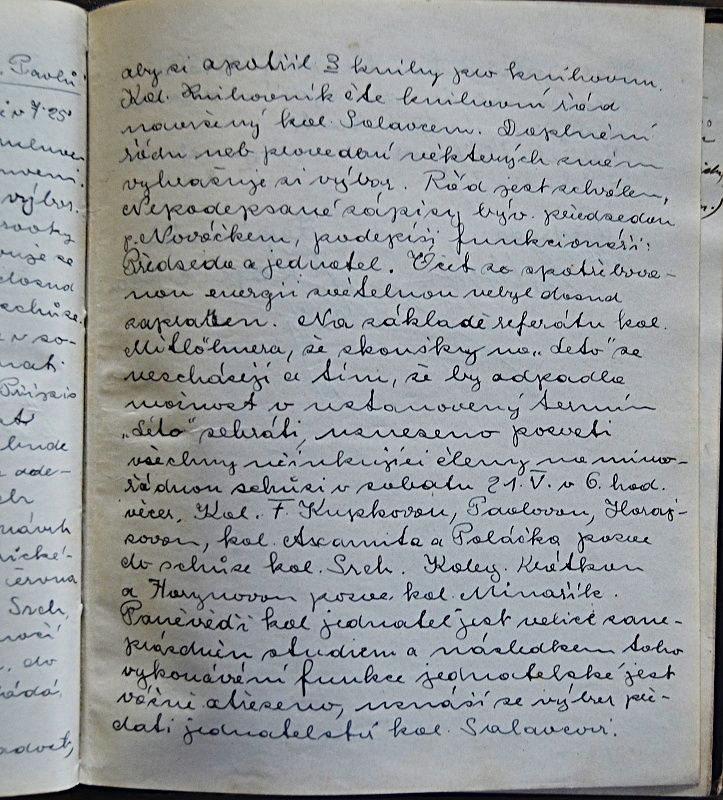 Pavlů
i v 7.25'
výbor.
schůze.
bude
návrh
června
Srch,
do
žádá,
aby si opatřil 3 knihy pro knihovnu.
Kol. knihovník čte knihovní řád
navržený kol. Salavcem. Doplnění
řádu neb provedení některých změn
vyhražuje si výbor. Řád jest schválen,
Nepodepsané zápisy býv. předsedou
p. Nováčkem, podepíší funkcionáři:
Předseda a jednatel. Účet za spotřebova-
nou energii světelnou nebyl dosud
zaplacen. Na základě referátu kol.
že zkoušky na „Léto" se
nescházejí a tím, že by odpadla
možnost v ustanovený termín
„Léto" sehráti, usneseno pozvati
všechny účinkující členy na mimo-
řádnou schůzi v sobotu 21. V. v 6. hod.
večer. Kol. F. Kupkovou, Pavlovou, Horaj-
sovou, kol. Axamita a Poláčka pozve
do schůze kol. Srch. Koleg. Krátkou
a Harynovou pozve kol. Minařík.
Poněvadž kol jednatel jest velice zane-
prázdněn studiem a následkem toho
vykonávání funkce jednatelské jest
vážně otřeseno, usnáší se výbor pře-
dati jednatelství kol. Salavcovi.